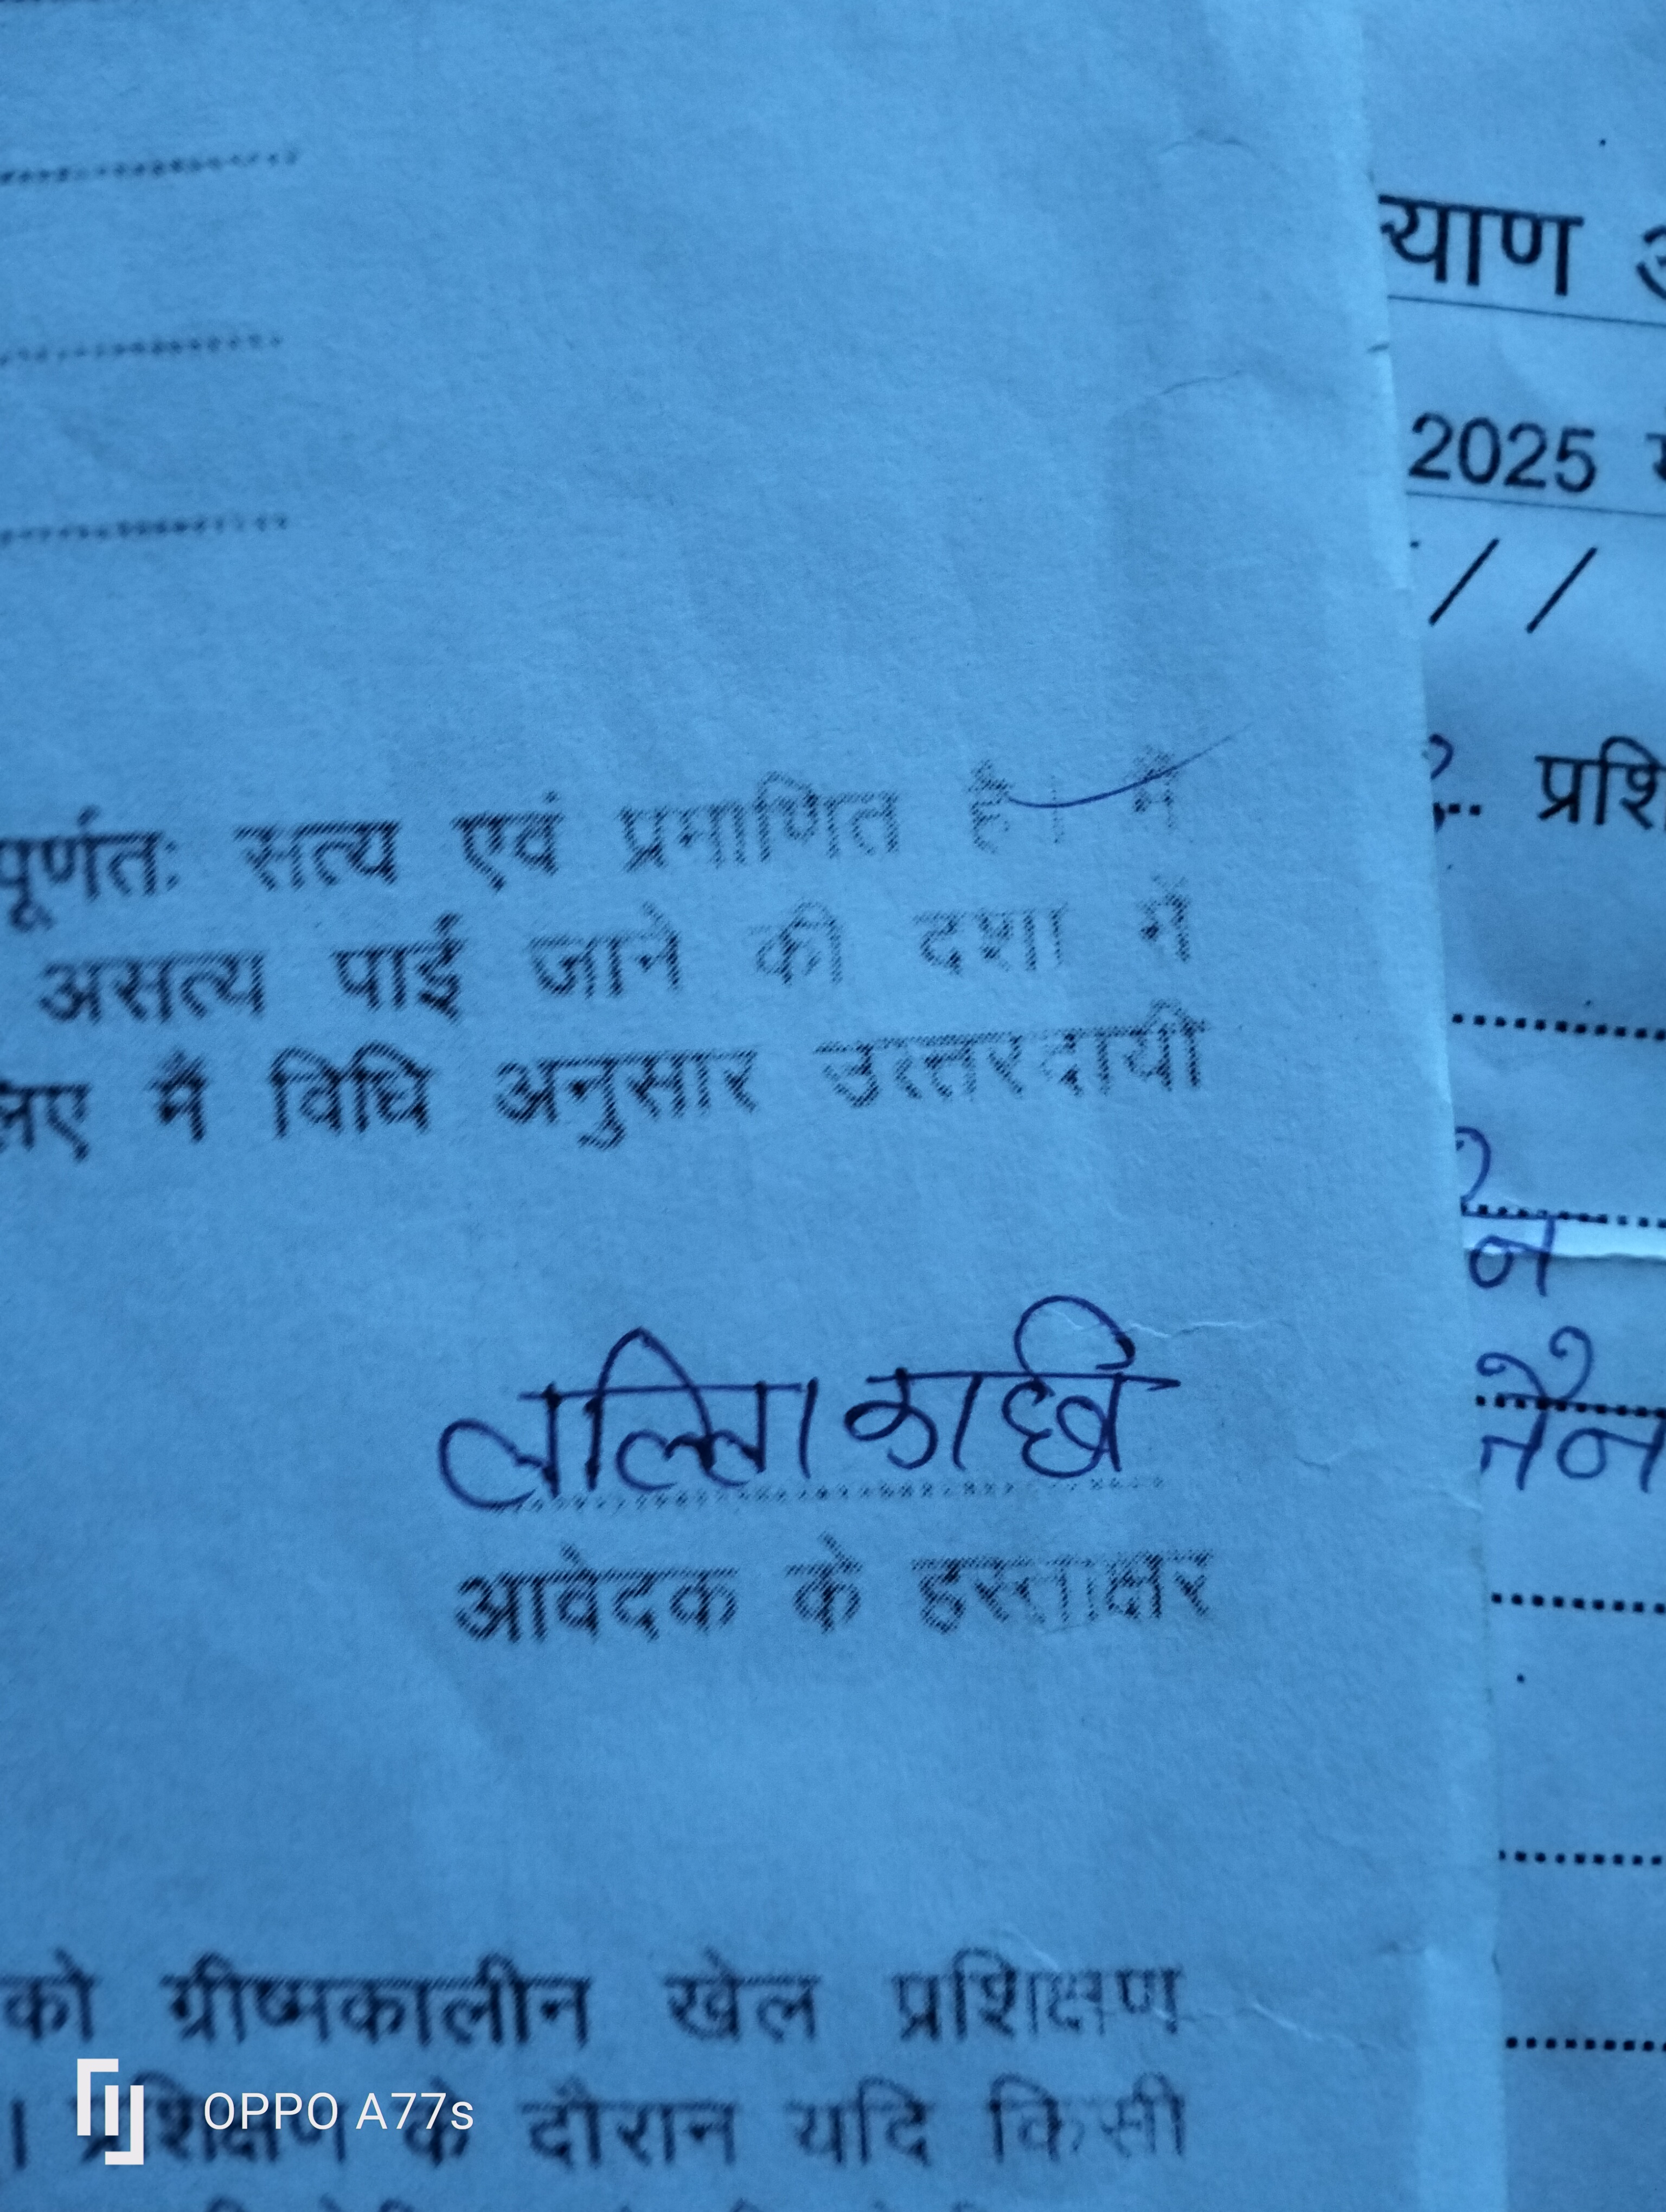 पूर्णतः सत्य एवं प्रमाणित है। मैं
असत्य पाई जाने की दशा में
लिए मैं विधि अनुसार उत्तरदायी
आवेदक के हस्ताक्षर
को ग्रीष्मकालीन खेल प्रशिक्षण
। प्रशिक्षण के दौरान यदि किसी
याण
2025
/ /
प्रशि
न
OPPO A77s